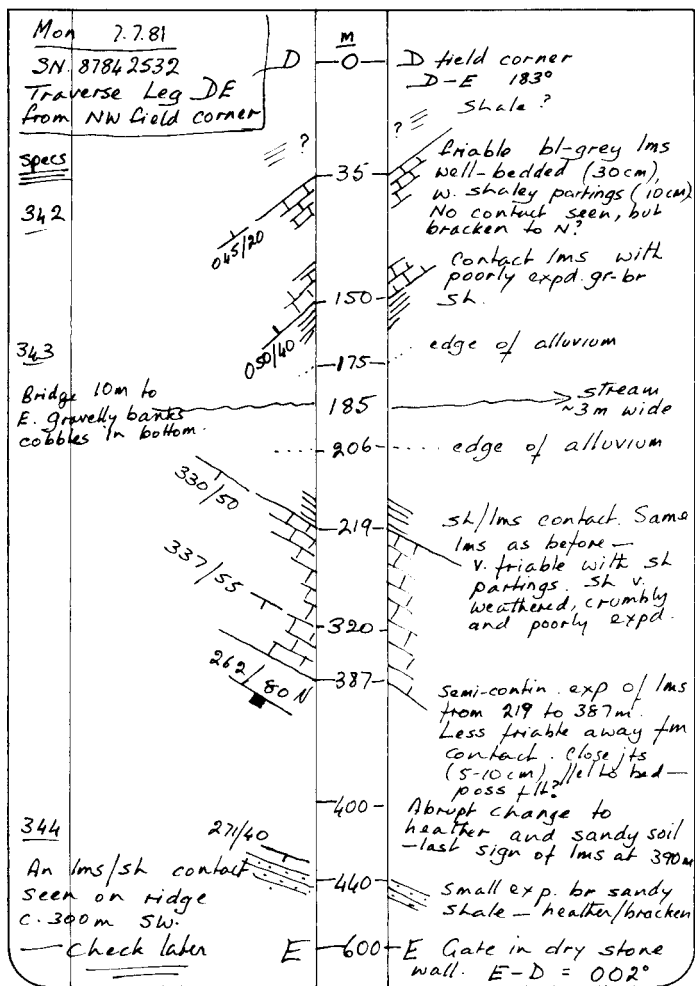 Mon 7.7.81
SN. 87842532
Traverse Leg DE
from NW field corner
specs
342
343
Bridge 10m to
E. gravelly banks
cobbles in bottom.
344
An lms/sh contact
seen on ridge
c. 300m SW.
— Check later
D
? 
045/20
050/40
330/50
337/55
262/80 N
271/40
E
m
0
35
150
175
185
206
219
320
387
400
440
600
D field corner
D-E 183°
Shale ?
?
friable bl-grey lms
well-bedded (30cm),
w. shaley partings (10cm)
No contact seen, but
bracken to N?
Contact lms with
poorly expd. gr-br
sh.
edge of alluvium
stream
~3m wide
edge of alluvium
sh/lms contact. Same
lms as before —
v. friable with sh
partings. sh v.
weathered, crumbly
and poorly expd.
Semi-contin. exp of lms
from 219 to 387m.
Less friable away fm
contact. Close jts
(5-10cm) //el to bed —
poss flt?
Abrupt change to
heather and sandy soil
— last sign of lms at 390m
Small exp. br sandy
shale — heather/bracken
E Gate in dry stone
wall. E-D = 002°